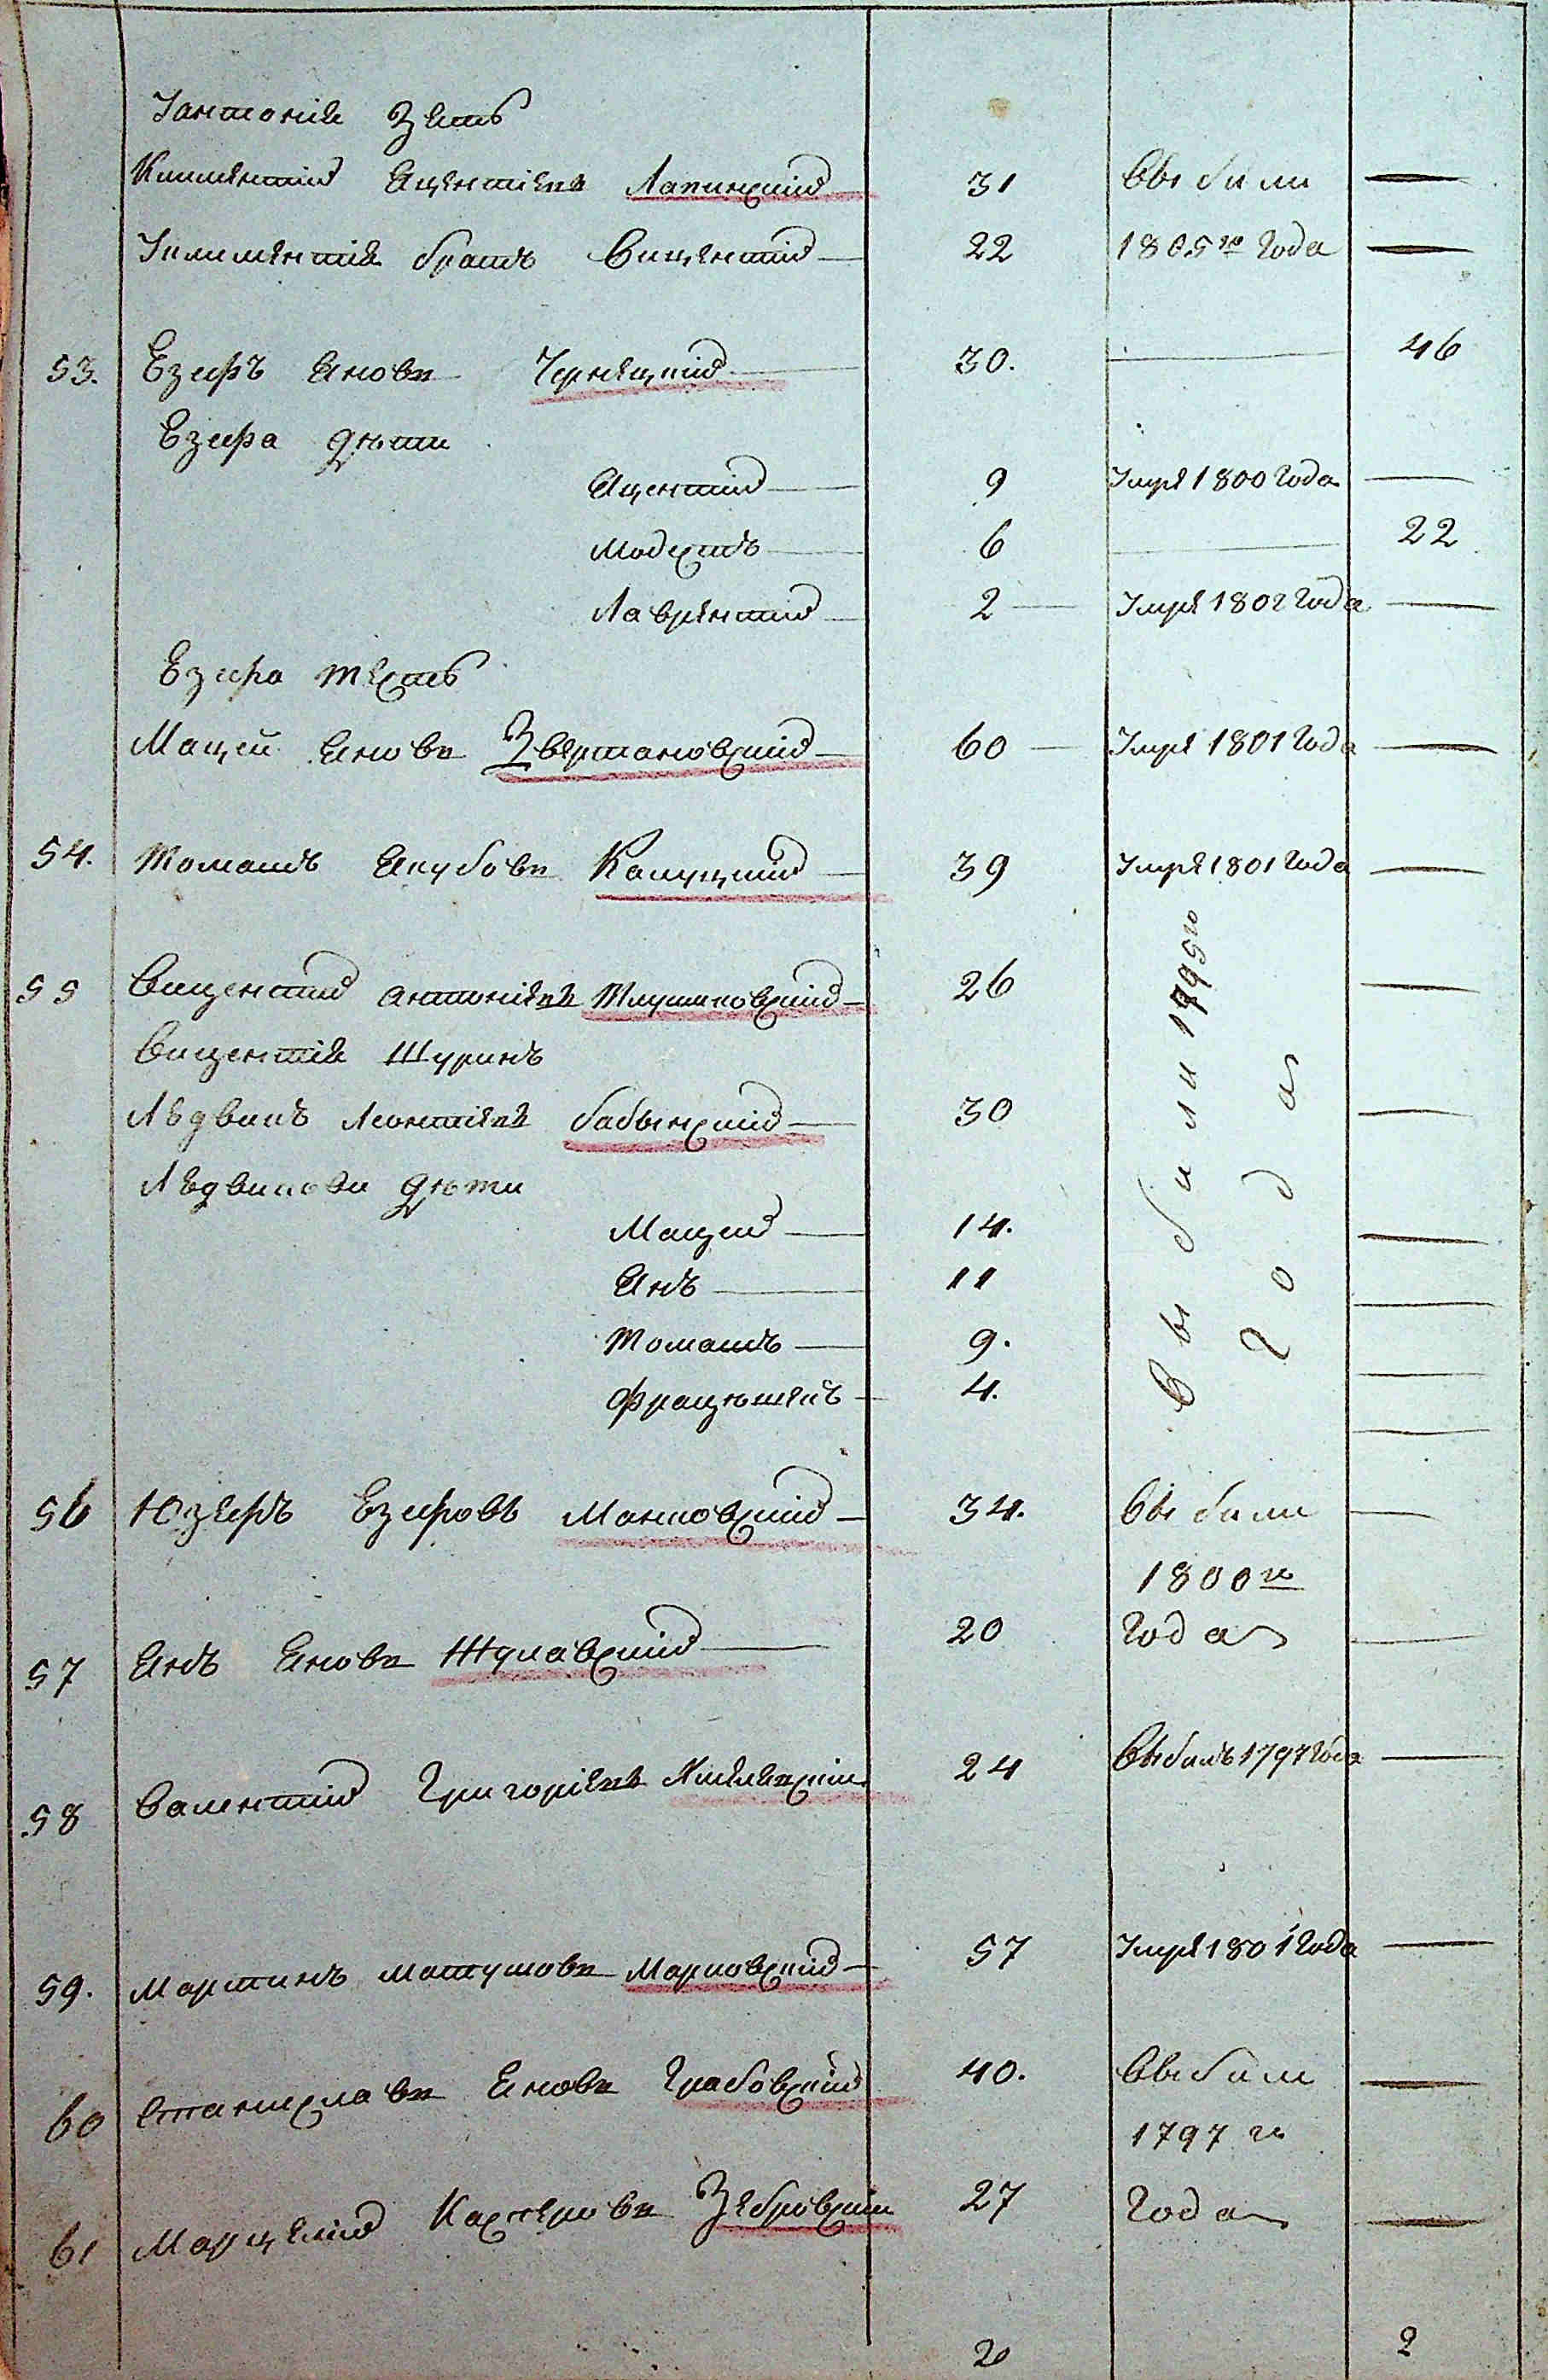 Іантонія Зять
Климентій Яцентіевъ Лапинскій 31 выбыли —
Іклиментія братъ Викентій 22 1805го года —
53. Езифъ Яновъ Чернецкій 30. — 46
Езифа дѣти
Яцентій 9 Умре 1800 года —
Модестъ 6 — 22
Лаврентій 2 — Умре 1802 года —
Езифа тесть
Мацей Яновъ Звертановскій 60 — Умре 1801 года —
54. Томашъ Якубовъ Капуцкій 39 Умре 1801 года —
55 Викентій Антоніевъ 26 —
Викентія Шуринъ
Людвикъ Леонтіевъ Бабынскій 30 —
Людвикови дѣти
Мацей 14. —
Янъ 11 —
Томашъ 9. —
Францѣшекъ 4. —
выбыли 1795го
года
56 Юзефъ Езифовъ Манковскій 34. выбыли —
1800го
57 Янъ Яновъ Жулавскій 20 года —
58 Валентій Григоріевъ 24 выбылъ 1797 года —
59. Мартинъ Матушовъ Марковскій 57 Умре 1801 года —
60 Станиславъ Яновъ Грабовскій 40. выбыли —
1797 го
61 Марцелій Касперовъ Зебровскій 27 года —
20 2